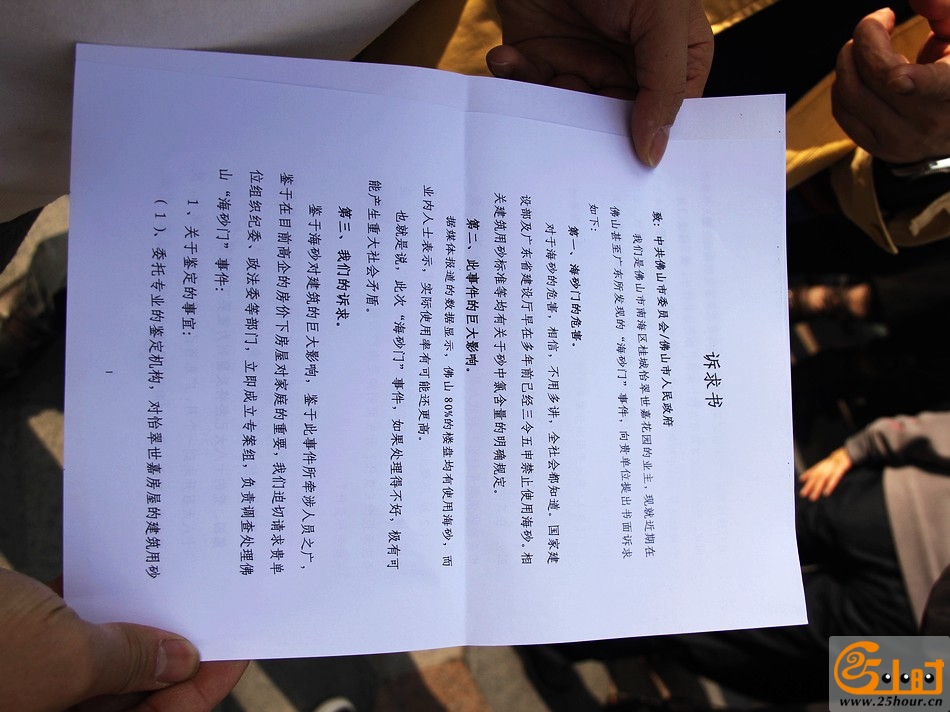 诉求书
致：中共佛山市委员会/佛山市人民政府
我们是佛山市南海区桂城怡翠世嘉花园的业主，现就近期在
佛山甚至广东所发现的“海砂门”事件，向贵单位提出书面诉求
如下：
第一、海砂门的危害。
对于海砂的危害，相信，不用多讲，全社会都知道。国家建
设部及广东省建设厅早在多年前已经三令五申禁止使用海砂。相
关建筑用砂标准等均有关于砂中氯含量的明确规定。
第二、此事件的巨大影响。
据媒体报道的数据显示，佛山80%的楼盘均有使用海砂，而
业内人士表示，实际使用率有可能还更高。
也就是说，此次“海砂门”事件，如果处理得不好，极有可
能产生重大社会矛盾。
第三、我们的诉求。
鉴于海砂对建筑的巨大影响，鉴于此事件所牵涉人员之广，
鉴于在目前高企的房价下房屋对家庭的重要，我们迫切请求贵单
位组织纪委、政法委等部门，立即成立专案组，负责调查处理佛
山“海砂门”事件：
1、关于鉴定的事宜：
（1）、委托专业的鉴定机构，对怡翠世嘉房屋的建筑用砂
1
25小时
www.25hour.cn